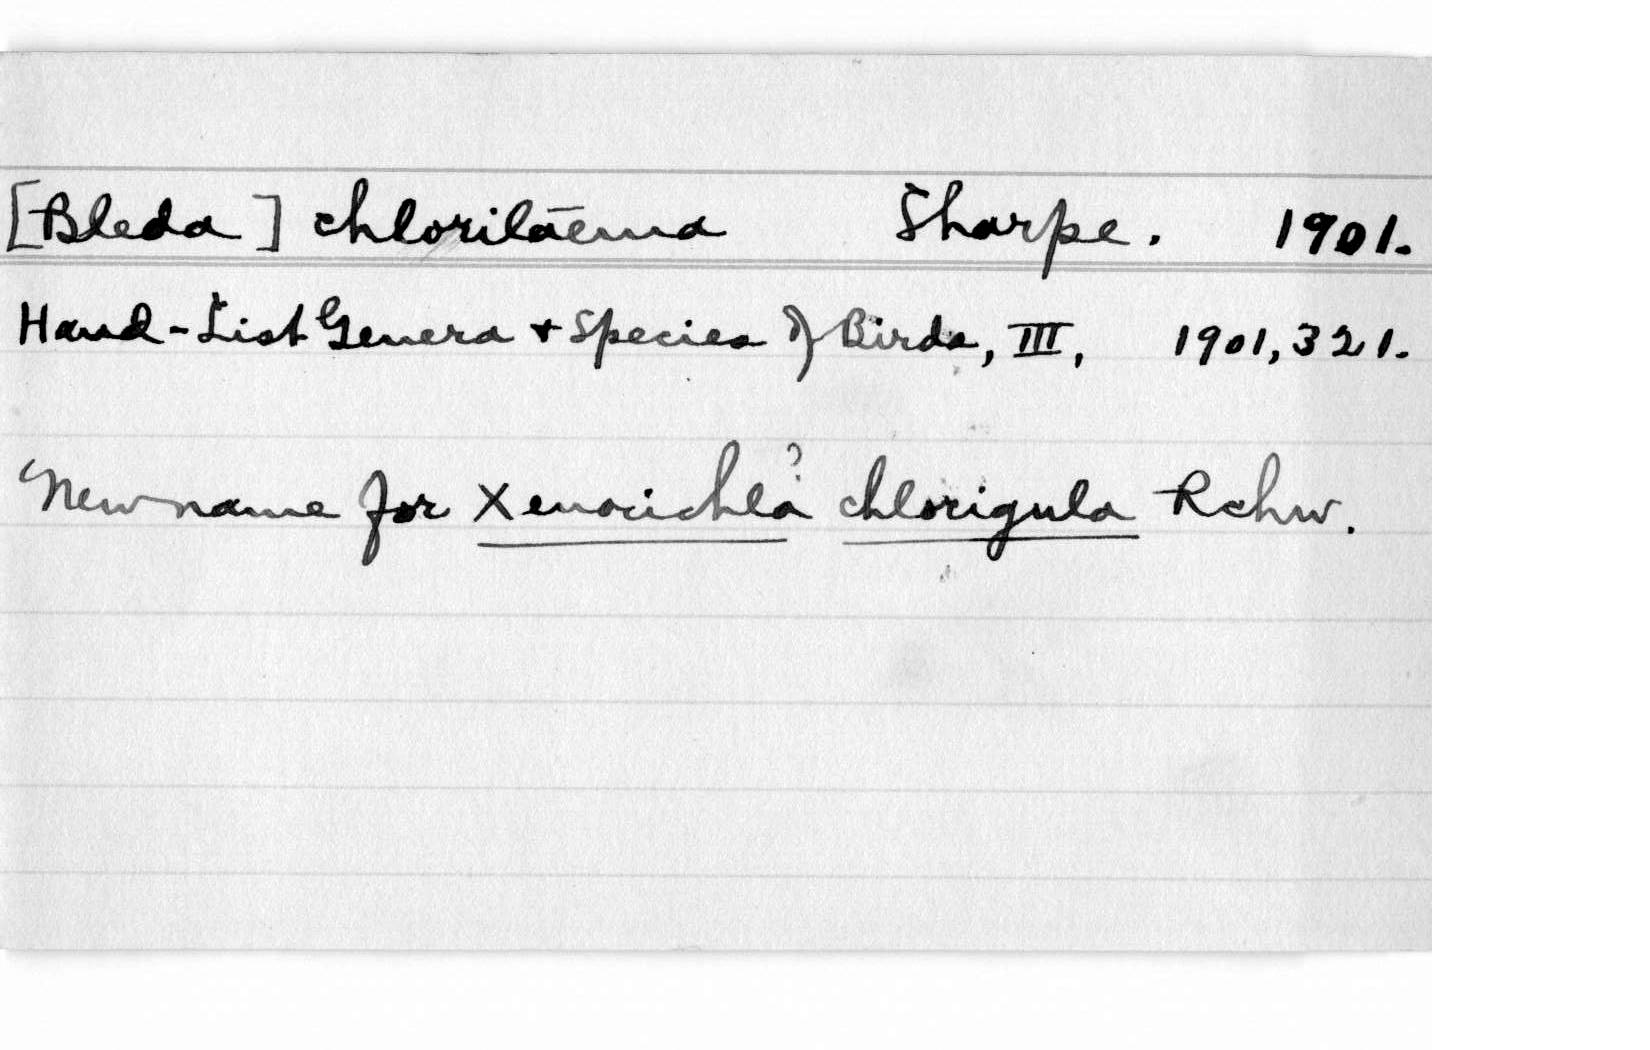 [Bleda] chlorilāema Sharpe. 1901.
Hand-List Genera + Species of Birds, III, 1901, 321.
New name for Xenocichla chlorigula Rchw.